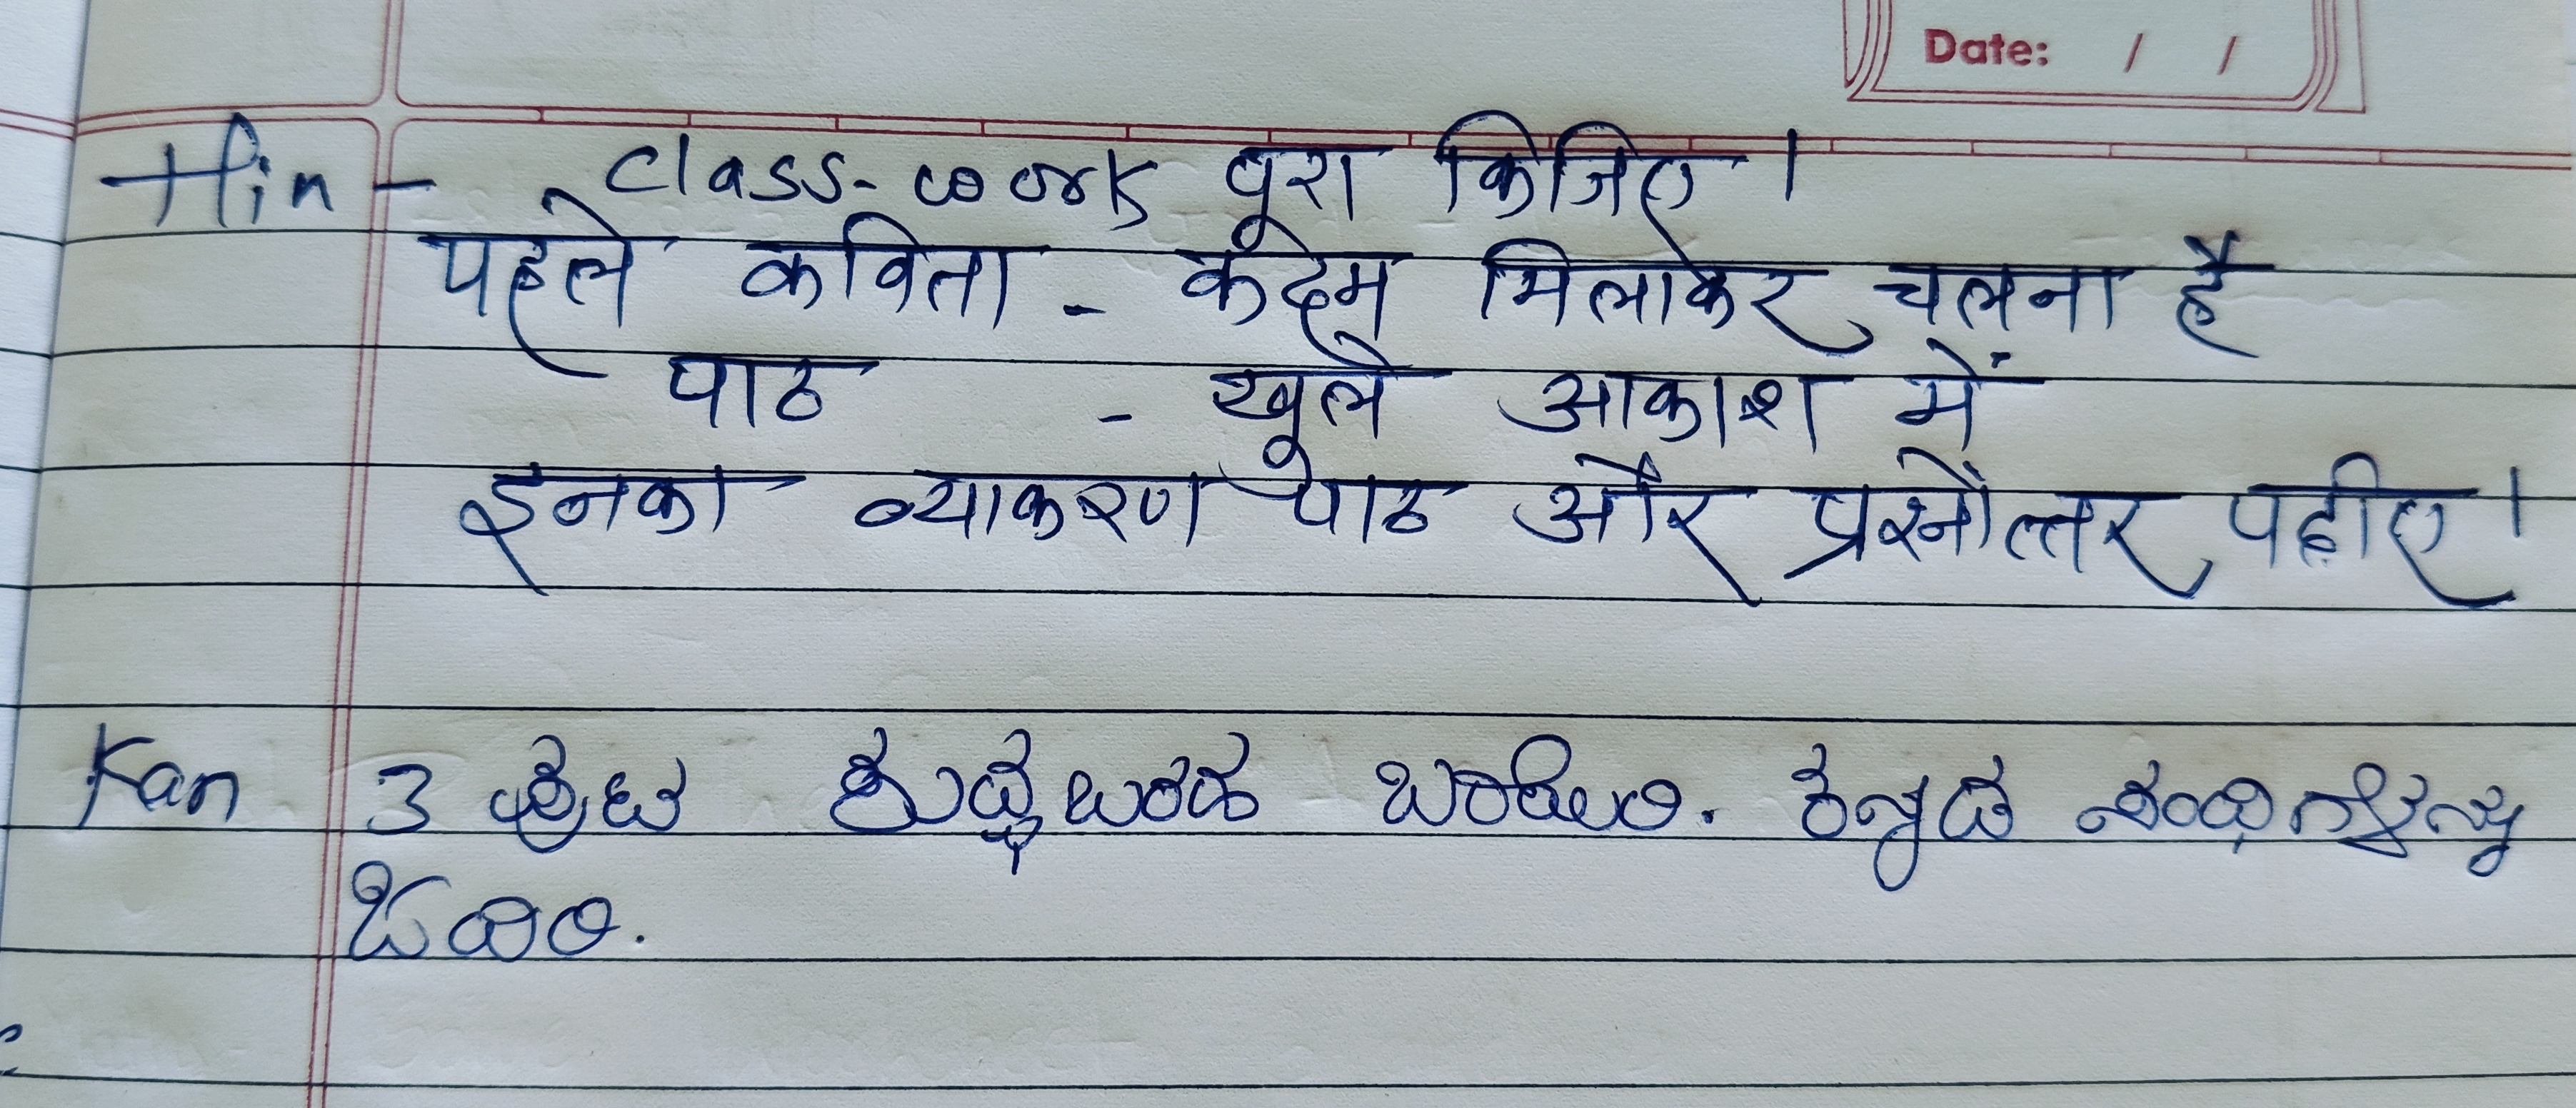 Date: / /
Hin - class-work पूरा किजिए।
पहले कविता - कदम मिलाकर चलना है
पाठ - खूले आकाश में
इनका व्याकरण पाठ और प्रश्नोत्तर पढीए।
Kan 3 ಪುಟ ಶುದ್ಧಬರಹ ಬರೆಯಿರಿ. ಕನ್ನಡ ಸಂಧಿಗಳನ್ನು
ಓದಿರಿ.